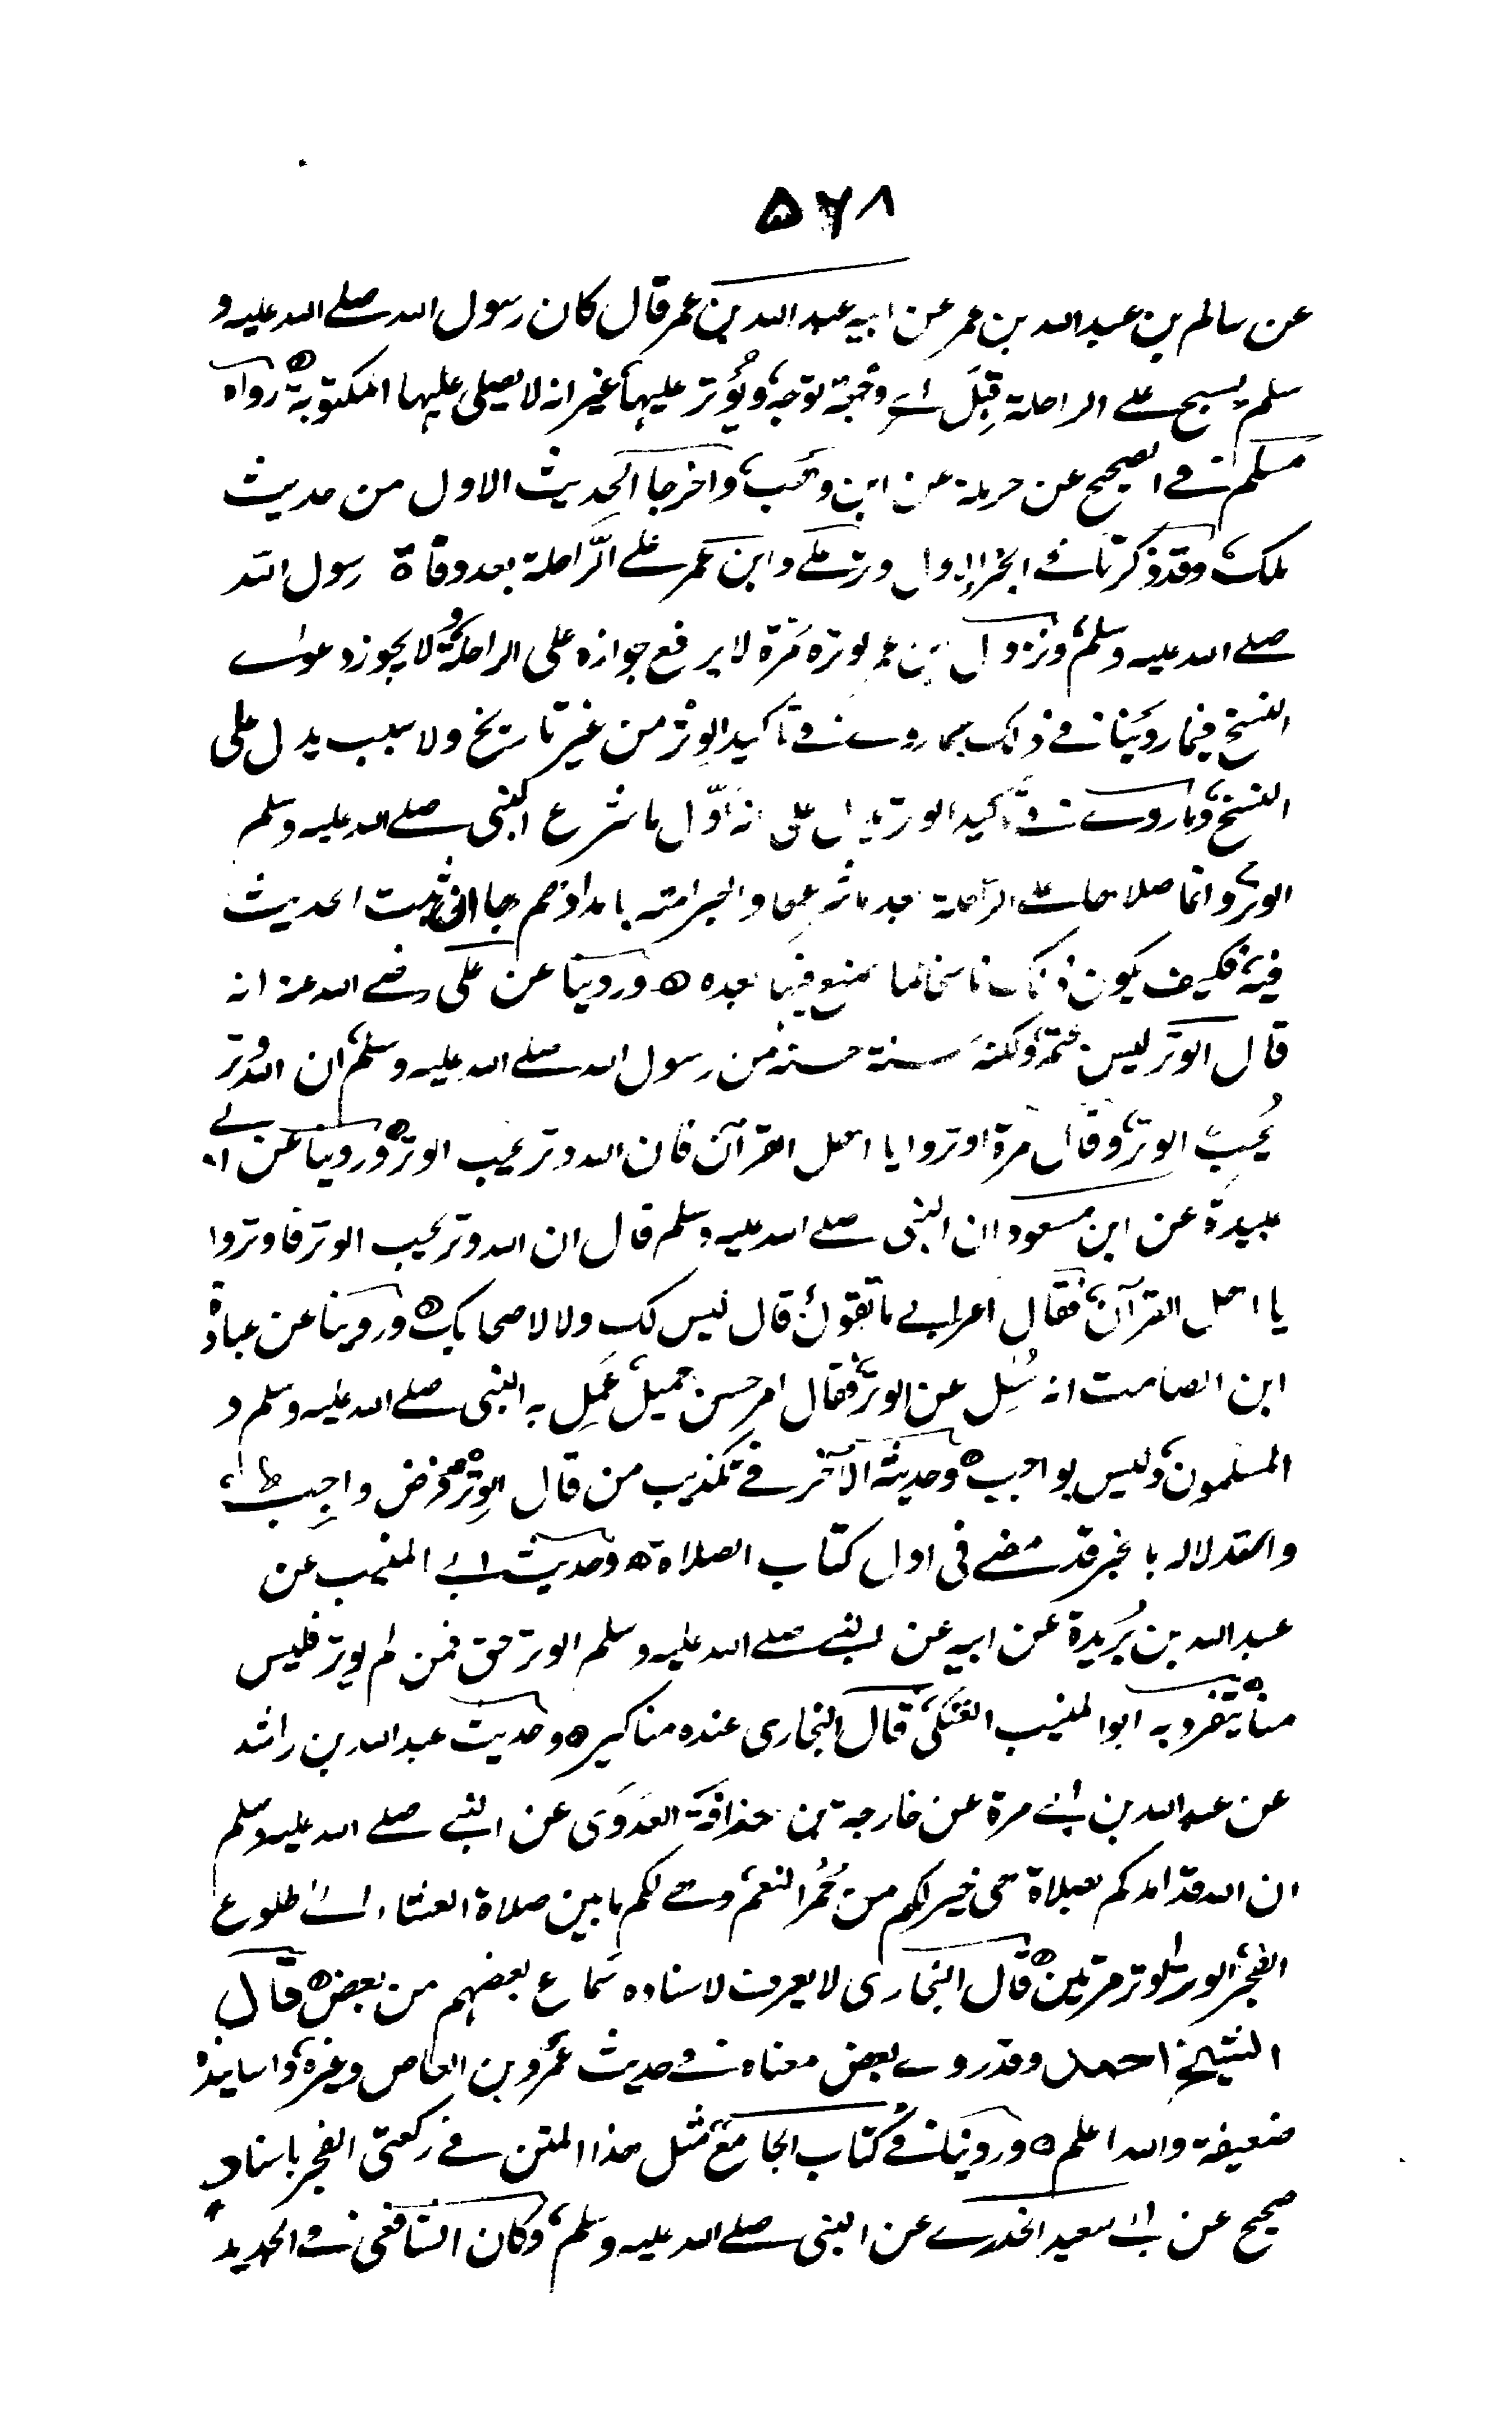 ۵۷۸
عن سالم بن عبد الله بن عمر عن ابيه عبد الله بن عمر قال كان رسول الله صلے الله عليه و
سلم يسبح علے الراحلة قِبَل اے وجهة توجه ويُوتر عليها غير انه لا يصلى عليها المكتوبة رواه
مسلم فے الصحيح عن حرملة عن ابن وهب واخرجا الحديث الاول من حديث
ملك وقد ذكرنا فے الجزء الاول وتر علے وابن عمر علے الراحلة بعد وفاة رسول الله
صلے الله عليه وسلم ونزول ابن عمر لوتره مرة لا يرفع جوازه على الراحلة ولا يجوز دعوے
النسخ فيما روينا فے ذلك بما روے فے تاكيد الوتر من غير تاريخ ولا سبب يدل على
النسخ وما روے فے تاكيد الوتر يدل على انه اوّل ما شرع النبى صلے الله عليه وسلم
الوتر وانما صلاها علے الراحلة بعد ما شرعها واخبر امته بامدادهم بها ان ثبت الحديث
فيه فكيف يكون ذلك ناسخا لما صنع فيها بعده ه وروينا عن على رضے الله عنه انه
قال الوتر ليس بحتم ولكنه سنة حسنة من رسول الله صلے الله عليه وسلم ان الله وتر
يُحِبّ الوتر وقال مرة اوتروا يا اهل القرآن فان الله وتر يحب الوتر ه وروينا عن ابے
عبيدة عن ابن مسعود ان النبى صلے الله عليه وسلم قال ان الله وتر يحب الوتر فاوتروا
يا اهل القرآن فقال اعرابے ما تقول قال ليس لك ولا لاصحابك ه وروينا عن عبادة
ابن الصامت انه سُئِل عن الوتر فقال امر حسن جميل عَمِل به النبى صلے الله عليه وسلم و
المسلمون وليس بواجب ه وحديثه الآخر فے تكذيب من قال الوتر فرض واجب
واستدلاله بالخبر قد مضے فى اول كتاب الصلاة ه وحديث ابے المنيب عن
عبد الله بن بُرَيدة عن ابيه عن النبے صلے الله عليه وسلم الوتر حق فمن لم يوتر فليس
منا يتفرد به ابو المنيب العتكى قال البخارى عنده مناكير ه وحديث عبد الله بن راشد
عن عبد الله بن ابے مرة عن خارجة بن حذافة العدوى عن النبے صلے الله عليه وسلم
ان الله قد امدكم بصلاة هى خير لكم من حُمُر النعم وهے لكم ما بين صلاة العشاء الے طلوع
الفجر الوتر الوتر مرتين ه قال البخارى لا يعرف لاسناده سماع بعضهم من بعض ه قال
الشيخ احمد وقد روے بعض معناه فے حديث عمرو بن العاص وغيره واسانيده
ضعيفة والله اعلم ه وروينا فے كتاب الجامع مثل هذا المتن فے ركعتى الفجر باسناد
صحيح عن ابے سعيد الخدرے عن النبى صلے الله عليه وسلم وكان الشافعى فے الجديد